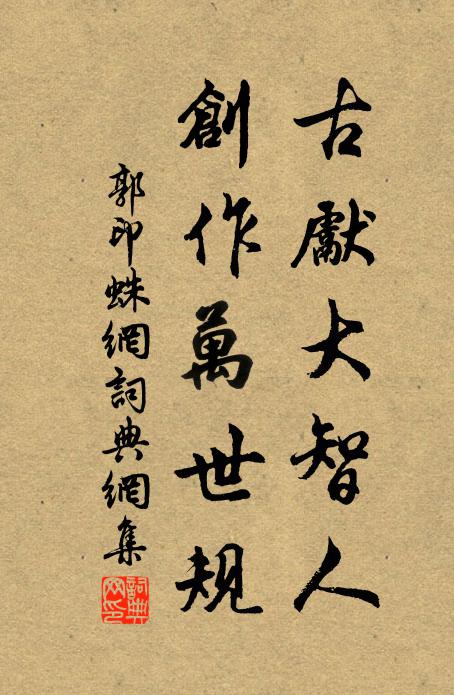 古獻大智人
創作萬世規
郭印蛛網詞典網集
詞典网印